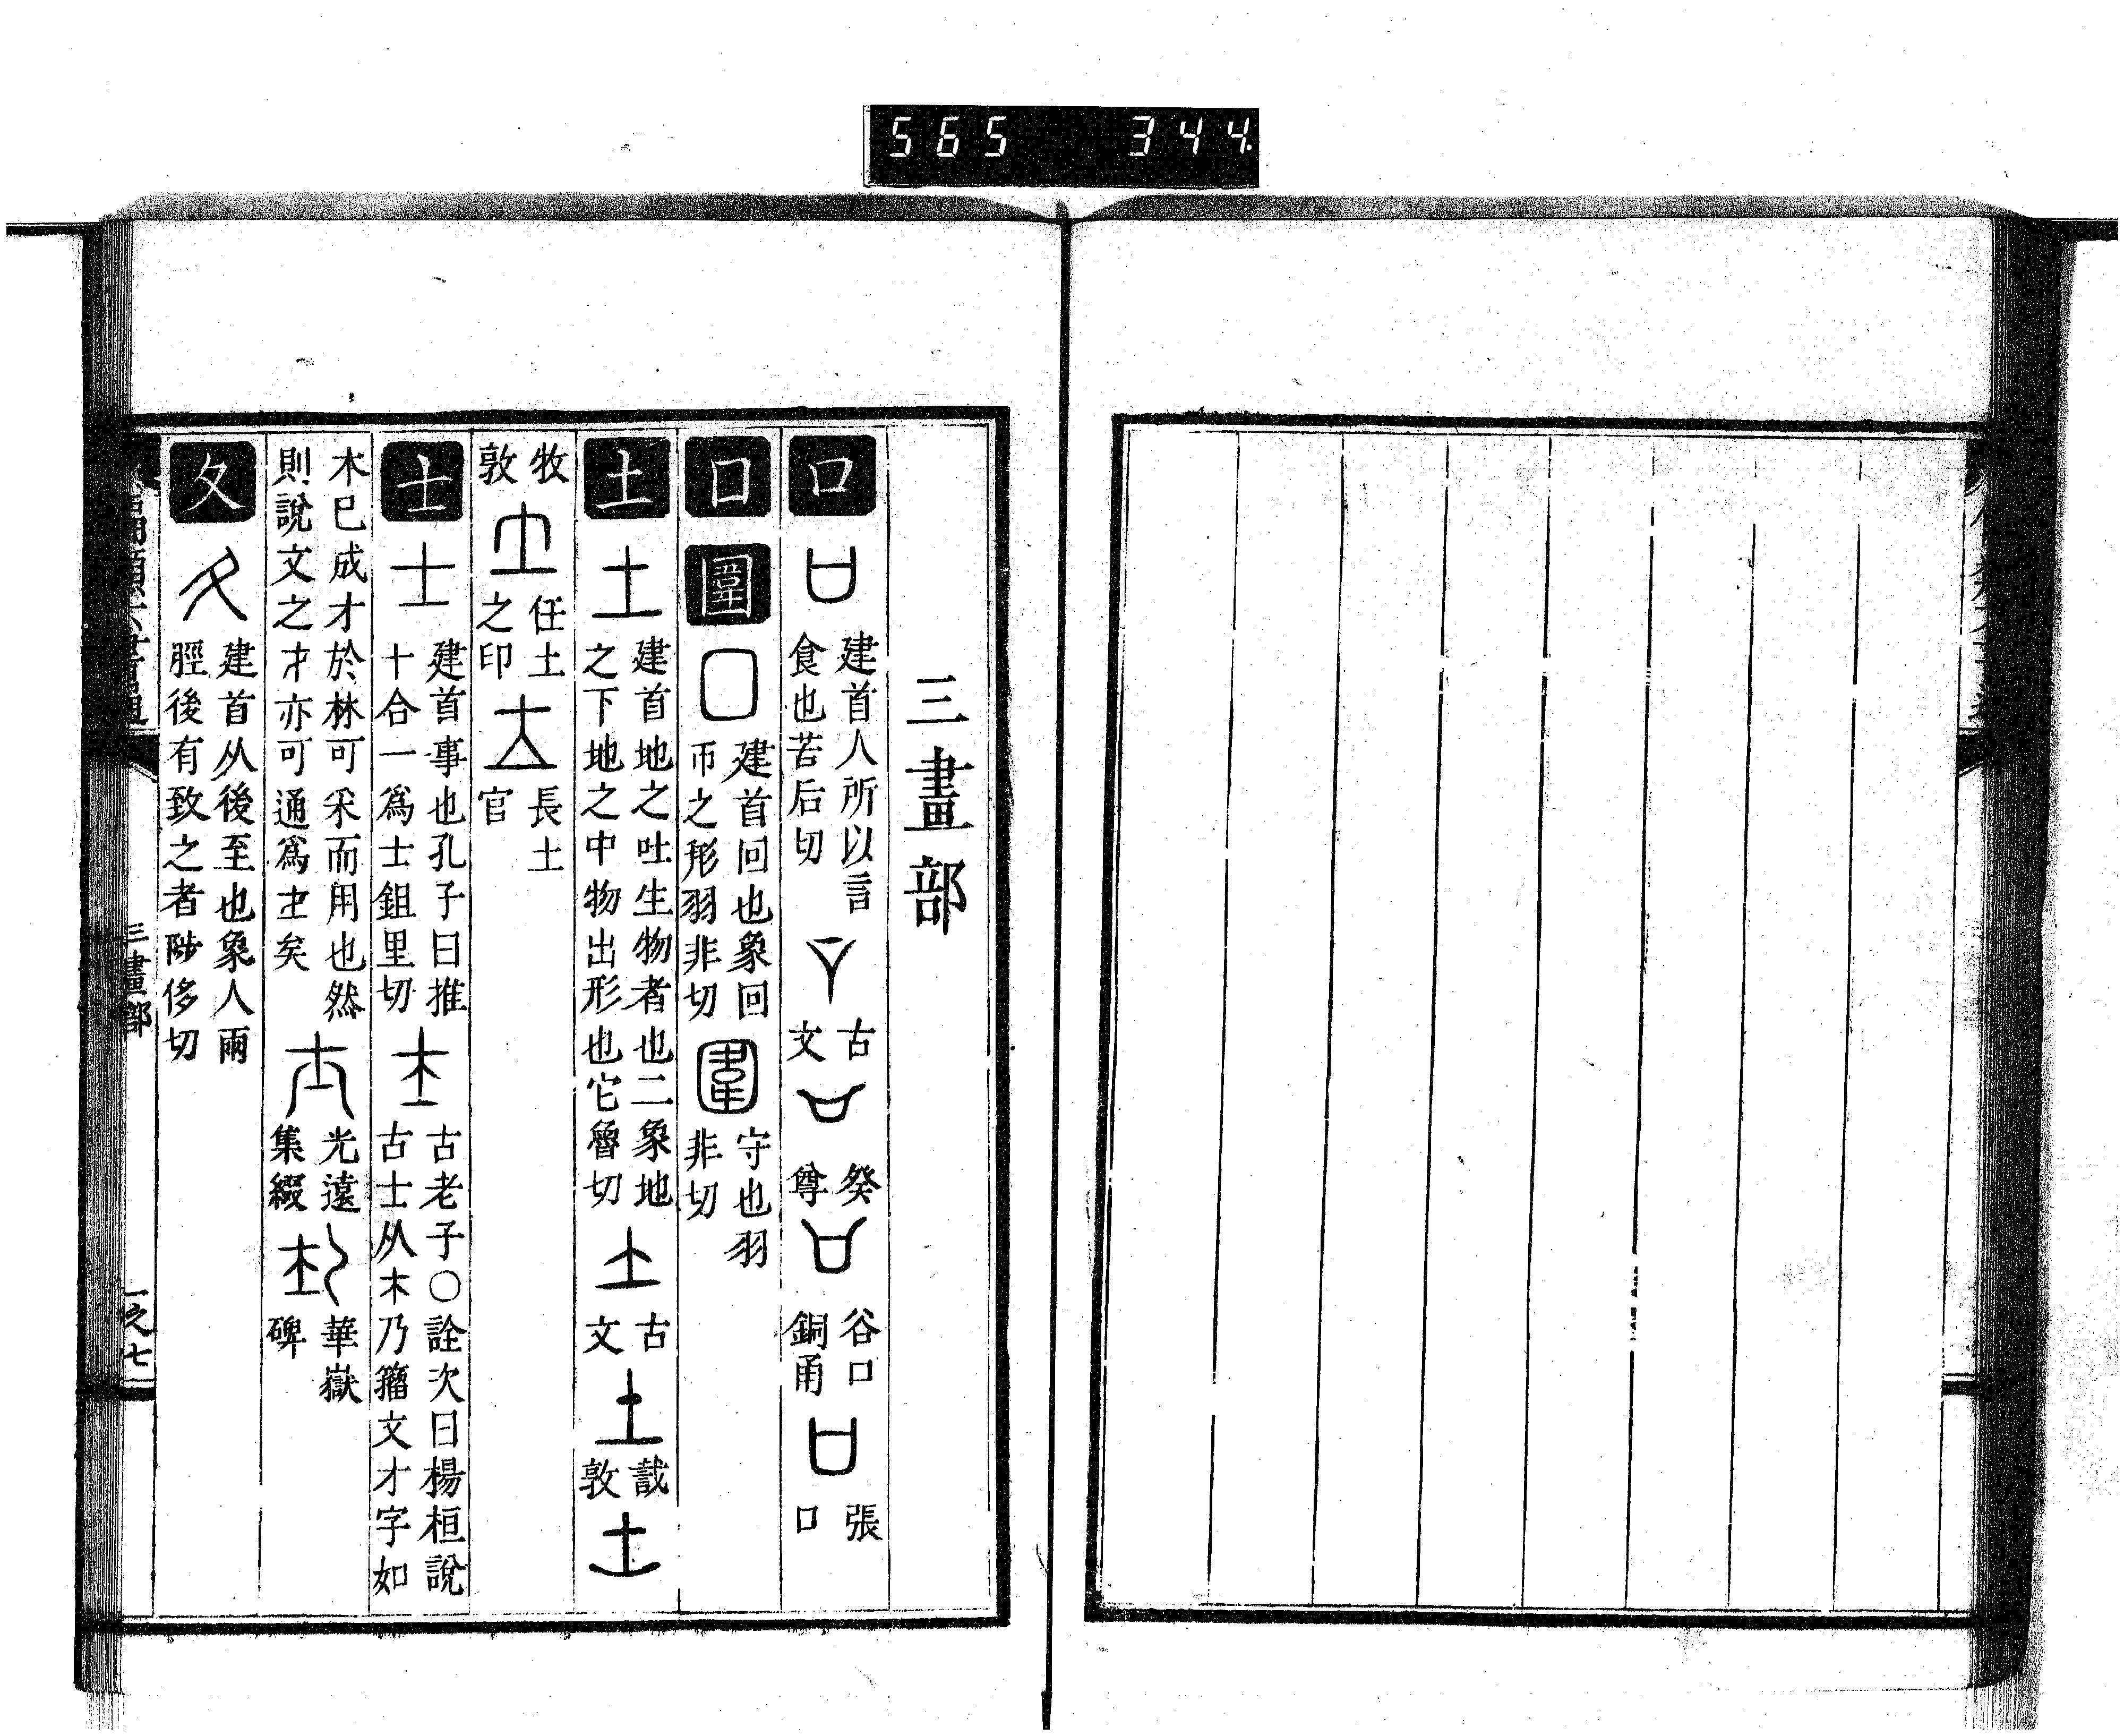 565 344
三畫部
口 建首人所以言食也苦后切 古文 癸尊 谷口銅甬 張口
囗 圍 建首回也象回帀之形羽非切 守也羽非切
土 建首地之吐生物者也二象地之下地之中物出形也它魯切 古文 敦
牧敦 任土之印 長土官
士 建首事也孔子曰推十合一爲士鉏里切 古老子○詮次曰楊桓說古士从木乃籀文才字如
木已成才於林可采而用也然則說文之才亦可通爲士矣 光遠集綴 華嶽碑
夂 建首从後至也象人兩脛後有致之者陟侈切
三畫部